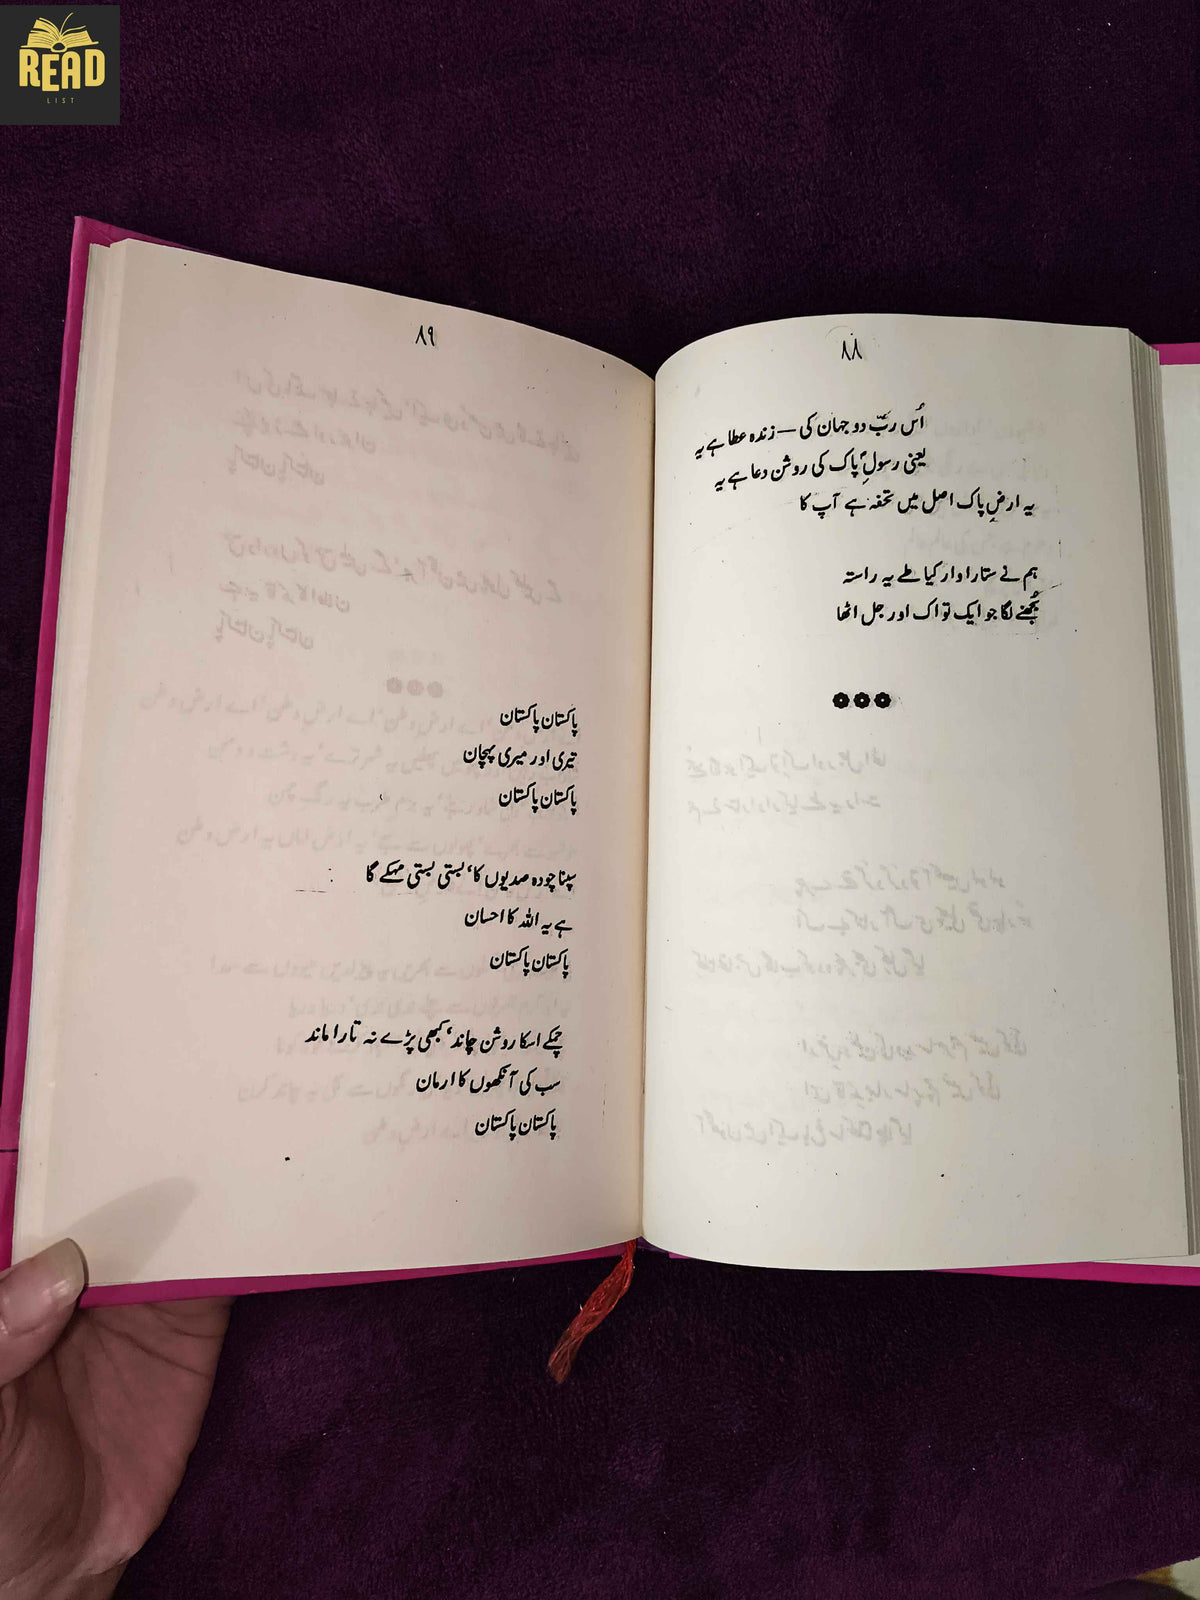 READ
LIST
۸۸
اُس ربِّ دو جہان کی — زندہ عطا ہے یہ
یعنی رسولِؐ پاک کی روشن دعا ہے یہ
یہ ارضِ پاک اصل میں تحفہ ہے آپ کا
ہم نے ستارا وار کیا طے یہ راستہ
بُجھنے لگا جو ایک تو اک اور جل اٹھا
۸۹
پاکستان پاکستان
تیری اور میری پہچان
پاکستان پاکستان
سپنا چودہ صدیوں کا، بستی بستی مہکے گا
ہے یہ اللہ کا احسان
پاکستان پاکستان
چمکے اسکا روشن چاند، کبھی پڑے نہ تارا ماند
سب کی آنکھوں کا ارمان
پاکستان پاکستان